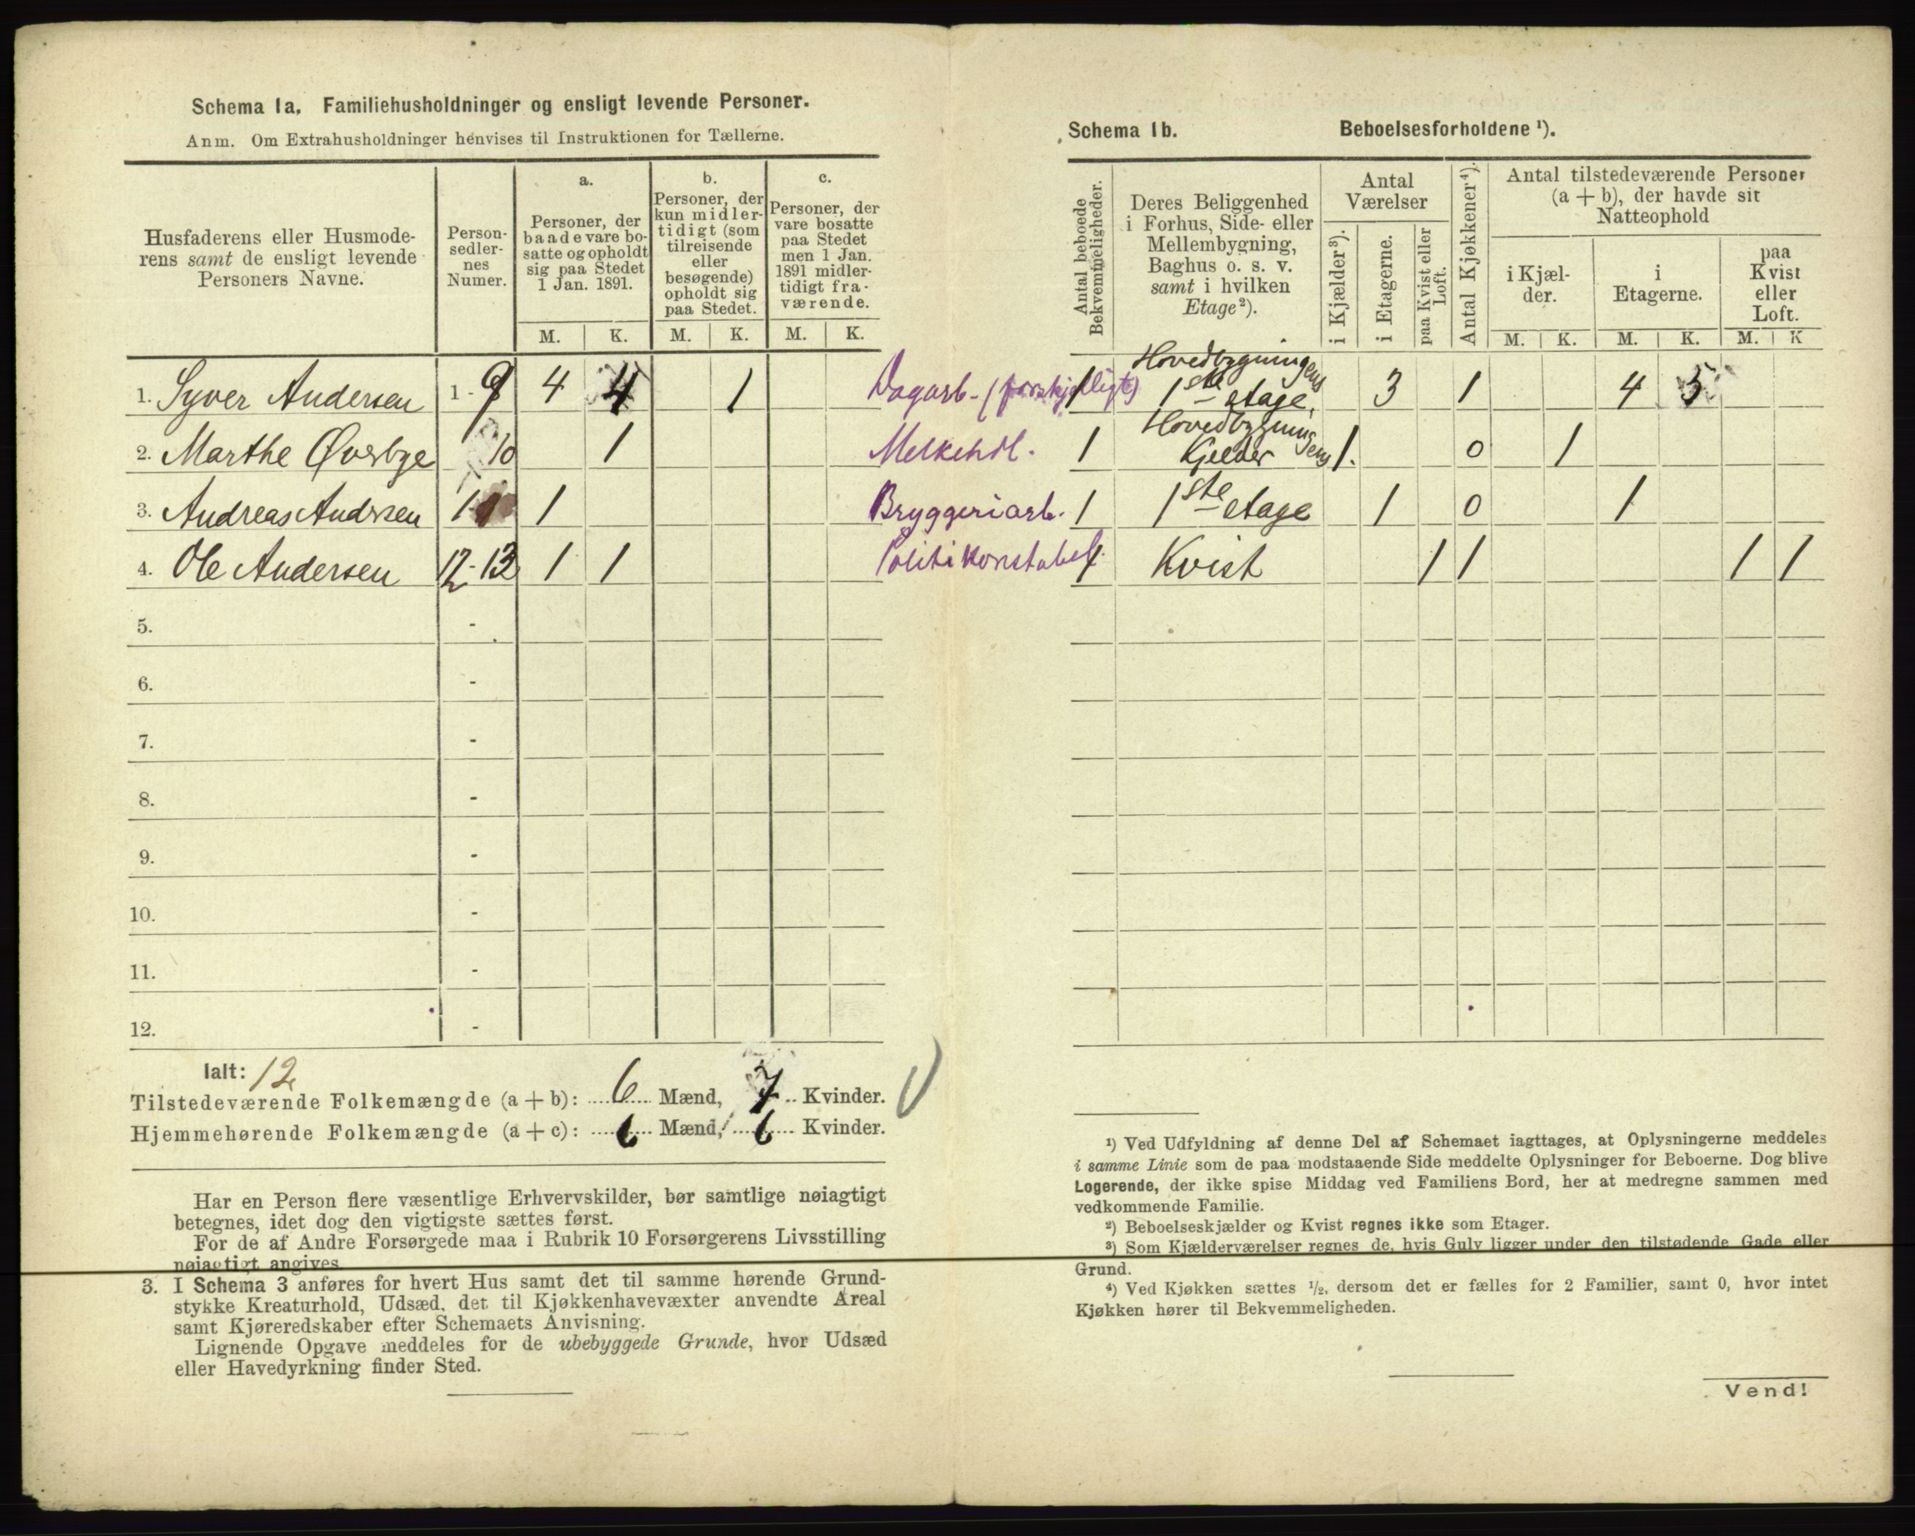 Schema 1a. Familiehusholdninger og ensligt levende Personer.
Anm. Om Extrahusholdninger henvises til Instruktionen for Tællerne.
Husfaderens eller Husmode-
rens samt de ensligt levende
Personers Navne.
Person-
sedler-
nes
Numer.
a.
Personer, der
baade vare bo-
satte og opholdt
sig paa Stedet
1 Jan. 1891.
b.
Personer, der
kun midler-
tidigt (som
tilreisende
eller
besøgende)
opholdt sig
paa Stedet.
c.
Personer, der
vare bosatte
paa Stedet
men 1 Jan.
1891 midler-
tidigt fra-
værende.
M. K. M. K. M. K.
1. Syver Andersen 1-9 4 4 1 Dagarb. (forskjelligt)
2. Marthe Øverbye 10 1 Melkehdl.
3. Andreas Andersen 11 1 Bryggeriarb.
4. Ole Andersen 12-13 1 1 Politikonstabel.
5. -
6. -
7. -
8. -
9. -
10. -
11. -
12. -
Ialt: 12
Tilstedeværende Folkemængde (a + b): 6 Mænd, 7 Kvinder.
Hjemmehørende Folkemængde (a + c): 6 Mænd, 6 Kvinder.
Har en Person flere væsentlige Erhvervskilder, bør samtlige nøiagtigt
betegnes, idet dog den vigtigste sættes først.
For de af Andre Forsørgede maa i Rubrik 10 Forsørgerens Livsstilling
nøiagtigt angives.
3. I Schema 3 anføres for hvert Hus samt det til samme hørende Grund-
stykke Kreaturhold, Udsæd, det til Kjøkkenhavevæxter anvendte Areal
samt Kjøreredskaber efter Schemaets Anvisning.
Lignende Opgave meddeles for de ubebyggede Grunde, hvor Udsæd
eller Havedyrkning finder Sted.
Schema 1b. Beboelsesforholdene ¹).
Antal beboede
Bekvemmeligheder.
Deres Beliggenhed
i Forhus, Side- eller
Mellembygning,
Baghus o. s. v.
samt i hvilken
Etage²).
Antal
Værelser
i Kjælder³).
i Etagerne.
paa Kvist eller
Loft.
Antal Kjøkkener⁴).
Antal tilstedeværende Personer
(a + b), der havde sit
Natteophold
i Kjæl-
der.
i
Etagerne.
paa
Kvist
eller
Loft.
M. K. M. K. M. K
1 Hovedbygningens
1ste etage, 3 1 4 5
1 Hovedbygningens
Kjelder 1. 0 1
1 1ste etage 1 0 1
1 Kvist 1 1 1 1
¹) Ved Udfyldning af denne Del af Schemaet iagttages, at Oplysningerne meddeles
i samme Linie som de paa modstaaende Side meddelte Oplysninger for Beboerne. Dog blive
Logerende, der ikke spise Middag ved Familiens Bord, her at medregne sammen med
vedkommende Familie.
²) Beboelseskjælder og Kvist regnes ikke som Etager.
³) Som Kjælderværelser regnes de, hvis Gulv ligger under den tilstødende Gade eller
Grund.
⁴) Ved Kjøkken sættes ½, dersom det er fælles for 2 Familier, samt 0, hvor intet
Kjøkken hører til Bekvemmeligheden.
Vend!